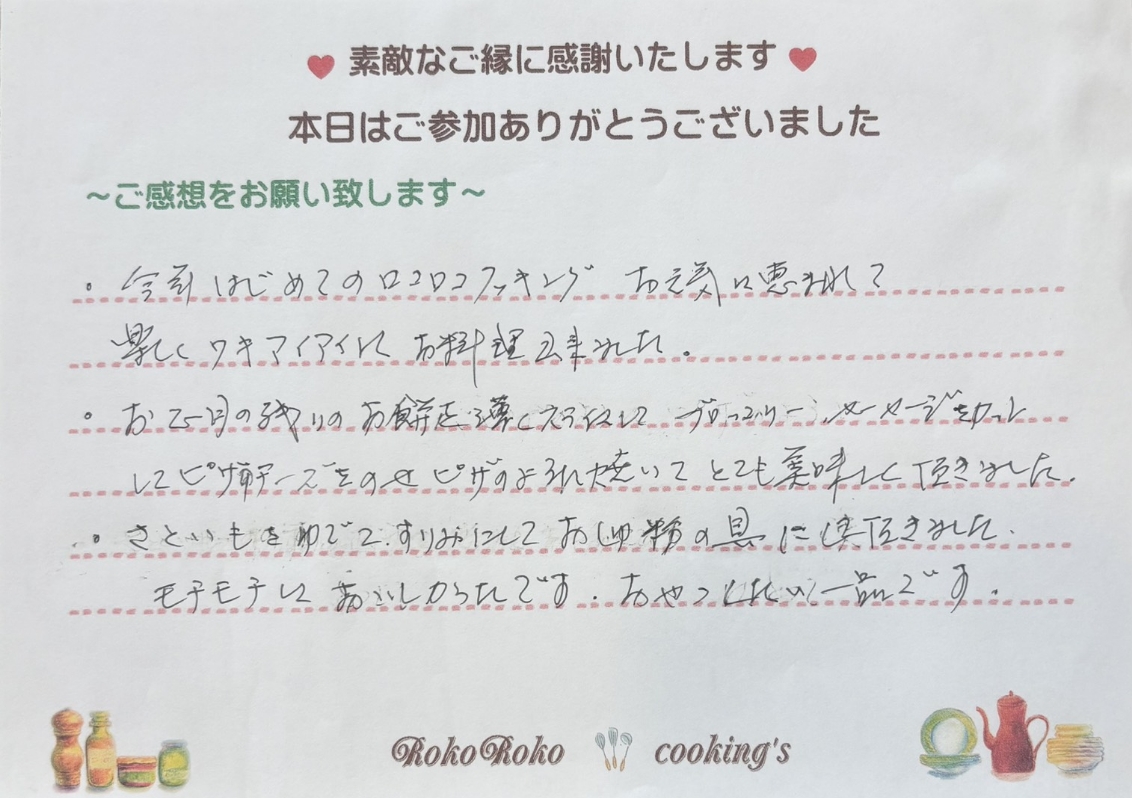 素敵なご縁に感謝いたします
本日はご参加ありがとうございました
～ご感想をお願い致します～
・今年はじめてのロコロコクッキング お天気に恵まれて
楽しくワキアイアイに お料理出来ました。
・お正月の残りのお餅を薄くスライスして ブロッコリー ソーセージをカット
してピザ用チーズをのせピザのように焼いて とても美味しく頂きました.
・さといもをゆでて すりみにして お の具に 頂きました.
モチモチして おいしかったです. おやつにしたい一品です.
RokoRoko cooking's